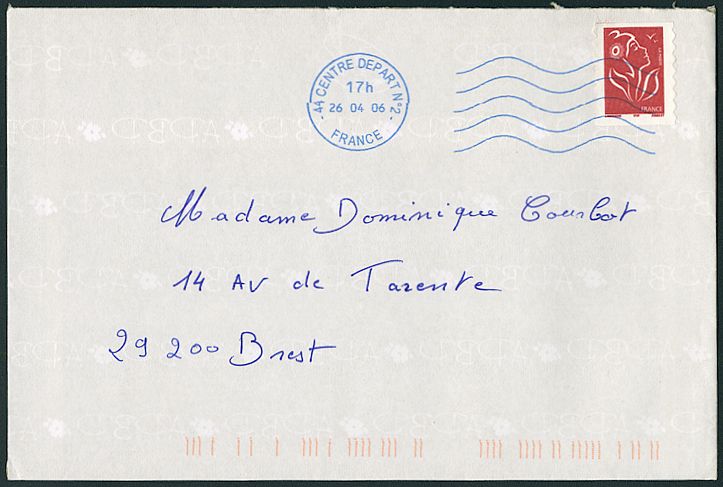 44 CENTRE DEPART N°2
17h
26 04 06
FRANCE
LA POSTE
FRANCE
Madame Dominique Courbot
14 AV de Tarente
29 200 Brest